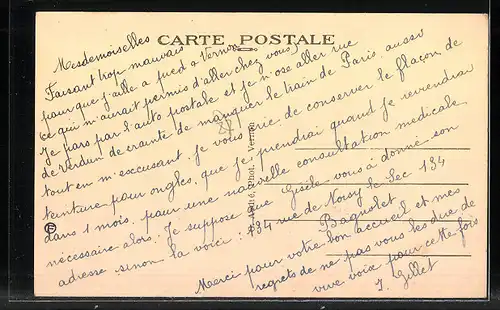 CARTE POSTALE
Mesdemoiselles
Faisant trop mauvais
pour que j'aille a pied a Vernon
(ce qui m'aurait permis d'aller chez vous)
Je pars par l'auto postale et je n'ose aller rue
de Verdun de crainte de manquer le train de Paris, aussi
tout en m'excusant. je vous prie de conserver le flacon de
teinture pour ongles, que je prendrai quand je reviendrai
dans 1 mois, pour une nouvelle consultation medicale
nécessaire alors. Je suppose que Gisèle vous a donné son
adresse sinon la voici : 134 rue de Noisy le Sec 134
Bagnolet
Merci pour votre bon accueil et mes
regrets de ne pas vous les dire de
vive voix pour cette fois
J. Gillet
Phot., Vernon